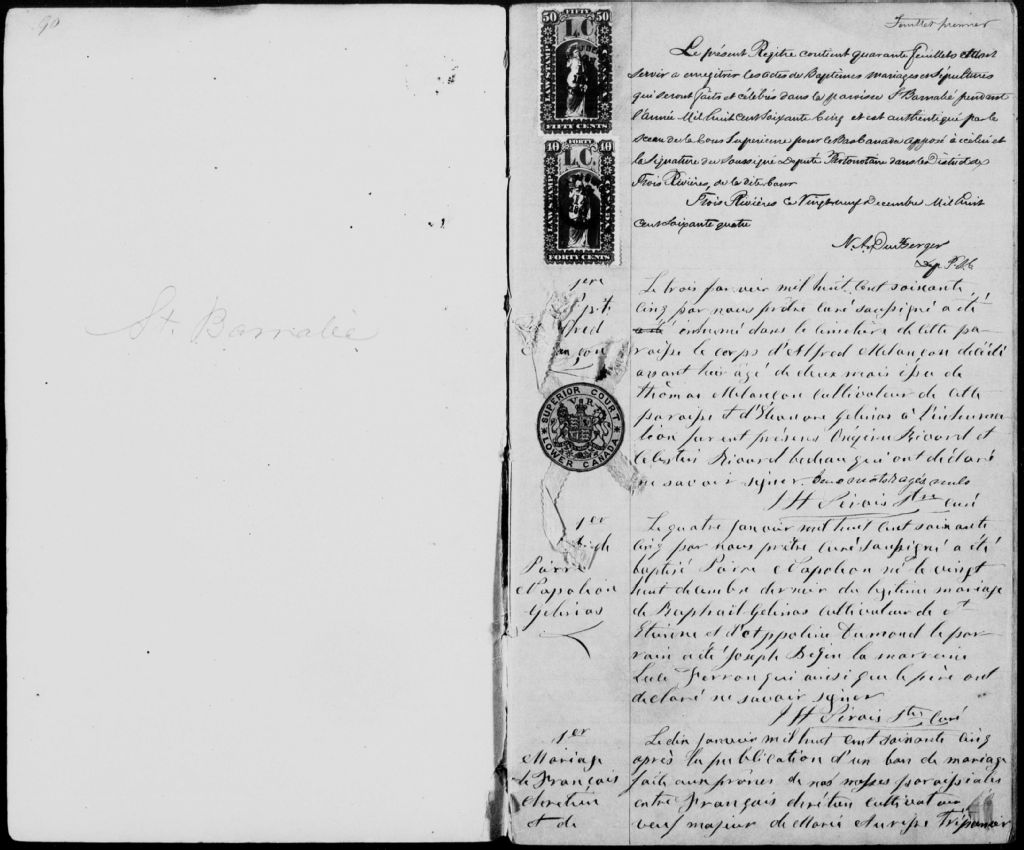 90
St. Barnabé
Feuillet premier
FIFTY
50 50
L.C.
LAW STAMP
FIFTY CENTS
FORTY
40 40
L.C.
LAW STAMP
FORTY CENTS
Le présent Regitre contient quarante feuillets et doit
servir a enregitrer les actes de Baptêmes mariages et Sépultures
qui seront faits et célébrés dans la paroisse St Barnabé pendant
l'Année Mil huit cent soixante Cinq et est authentiqué par le
sceau de la Cour Superieure pour le Bas Canada apposé à icelui et
la Signature du Soussigné Deputé Protonotaire dans le District des
Trois Rivières, de la dite Cour
Trois Rivières Ce Vingt neuf Decembre Mil huit
Cent Soixante quatre
Dep P.S.C.
1ere
Sépt.
Alfred
SUPERIOR COURT
V R
LOWER CANADA
Le trois janvier mil huit cent soixante
cinq par nous prêtre curé soussigné a été
a été inhumé dans le cimetière de cette pa-
roisse le corps d'Alfred Melançon décédé
avant hier âgé de deux mois issu de
Thomas Melançon cultivateur de cette
paroisse et d'Éléonore Gelinas à l'inhuma-
tion furent présens Onésime Ricard et
Celestin Ricard bedeau qui ont déclaré
ne savoir signer. Deux mots rayés nuls
J H Sirois Ptre curé
1er
Pierre
Napoléon
Gelinas
Le quatre janvier mil huit cent soixante
cinq par nous prêtre curé soussigné a été
baptisé Pierre Napoléon né le vingt
huit decembre dernier du légitime mariage
de Raphaël Gelinas cultivateur de St
Etienne et d'Appoline Dumond le par-
rain a été Joseph Begin la marraine
Luce Ferron qui ainsi que le père ont
déclaré ne savoir signer
J H Sirois Ptre Curé
1er
Mariage
de François
Chretien
et de
Le dix janvier mil huit cent soixante cinq
après la publication d'un ban de mariage
faite aux prônes de nos messes paroissiales
entre François Chrétien cultivateur
veuf majeur de Marie Trépanier